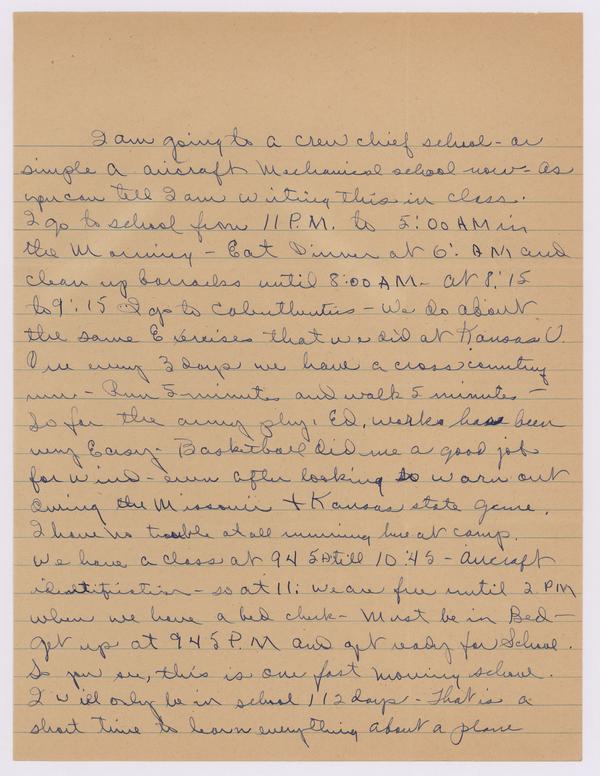 I am going to a crew chief school - or
simple a aircraft Mechanical school now - As
you can tell I am writing this in class.
I go to school from 11 P.M. to 5:00 AM in
the Morning - Eat Dinner at 6: AM and
clean up barracks until 8:00 AM - at 8:15
to 9:15 I go to Calenthentics - We do about
the same Exercises that we did at Kansas U.
One every 3 days we have a cross country
run - Run 5 minutes and walk 5 minutes -
So far the army phy. Ed. works has been
very Easy - Basketball did me a good job
for wind - even after looking so warn out
during the Missouri + Kansas state game.
I have no trouble at all running here at camp.
We have a class at 945 A till 10:45 - Aircraft
identifiction - so at 11: we are free until 2 PM
when we have a bed check - Must be in Bed -
get up at 945 P.M and get ready for School.
So you see, this is one fast moving school.
I will only be in school 112 days - That is a
short time to learn everything about a plane